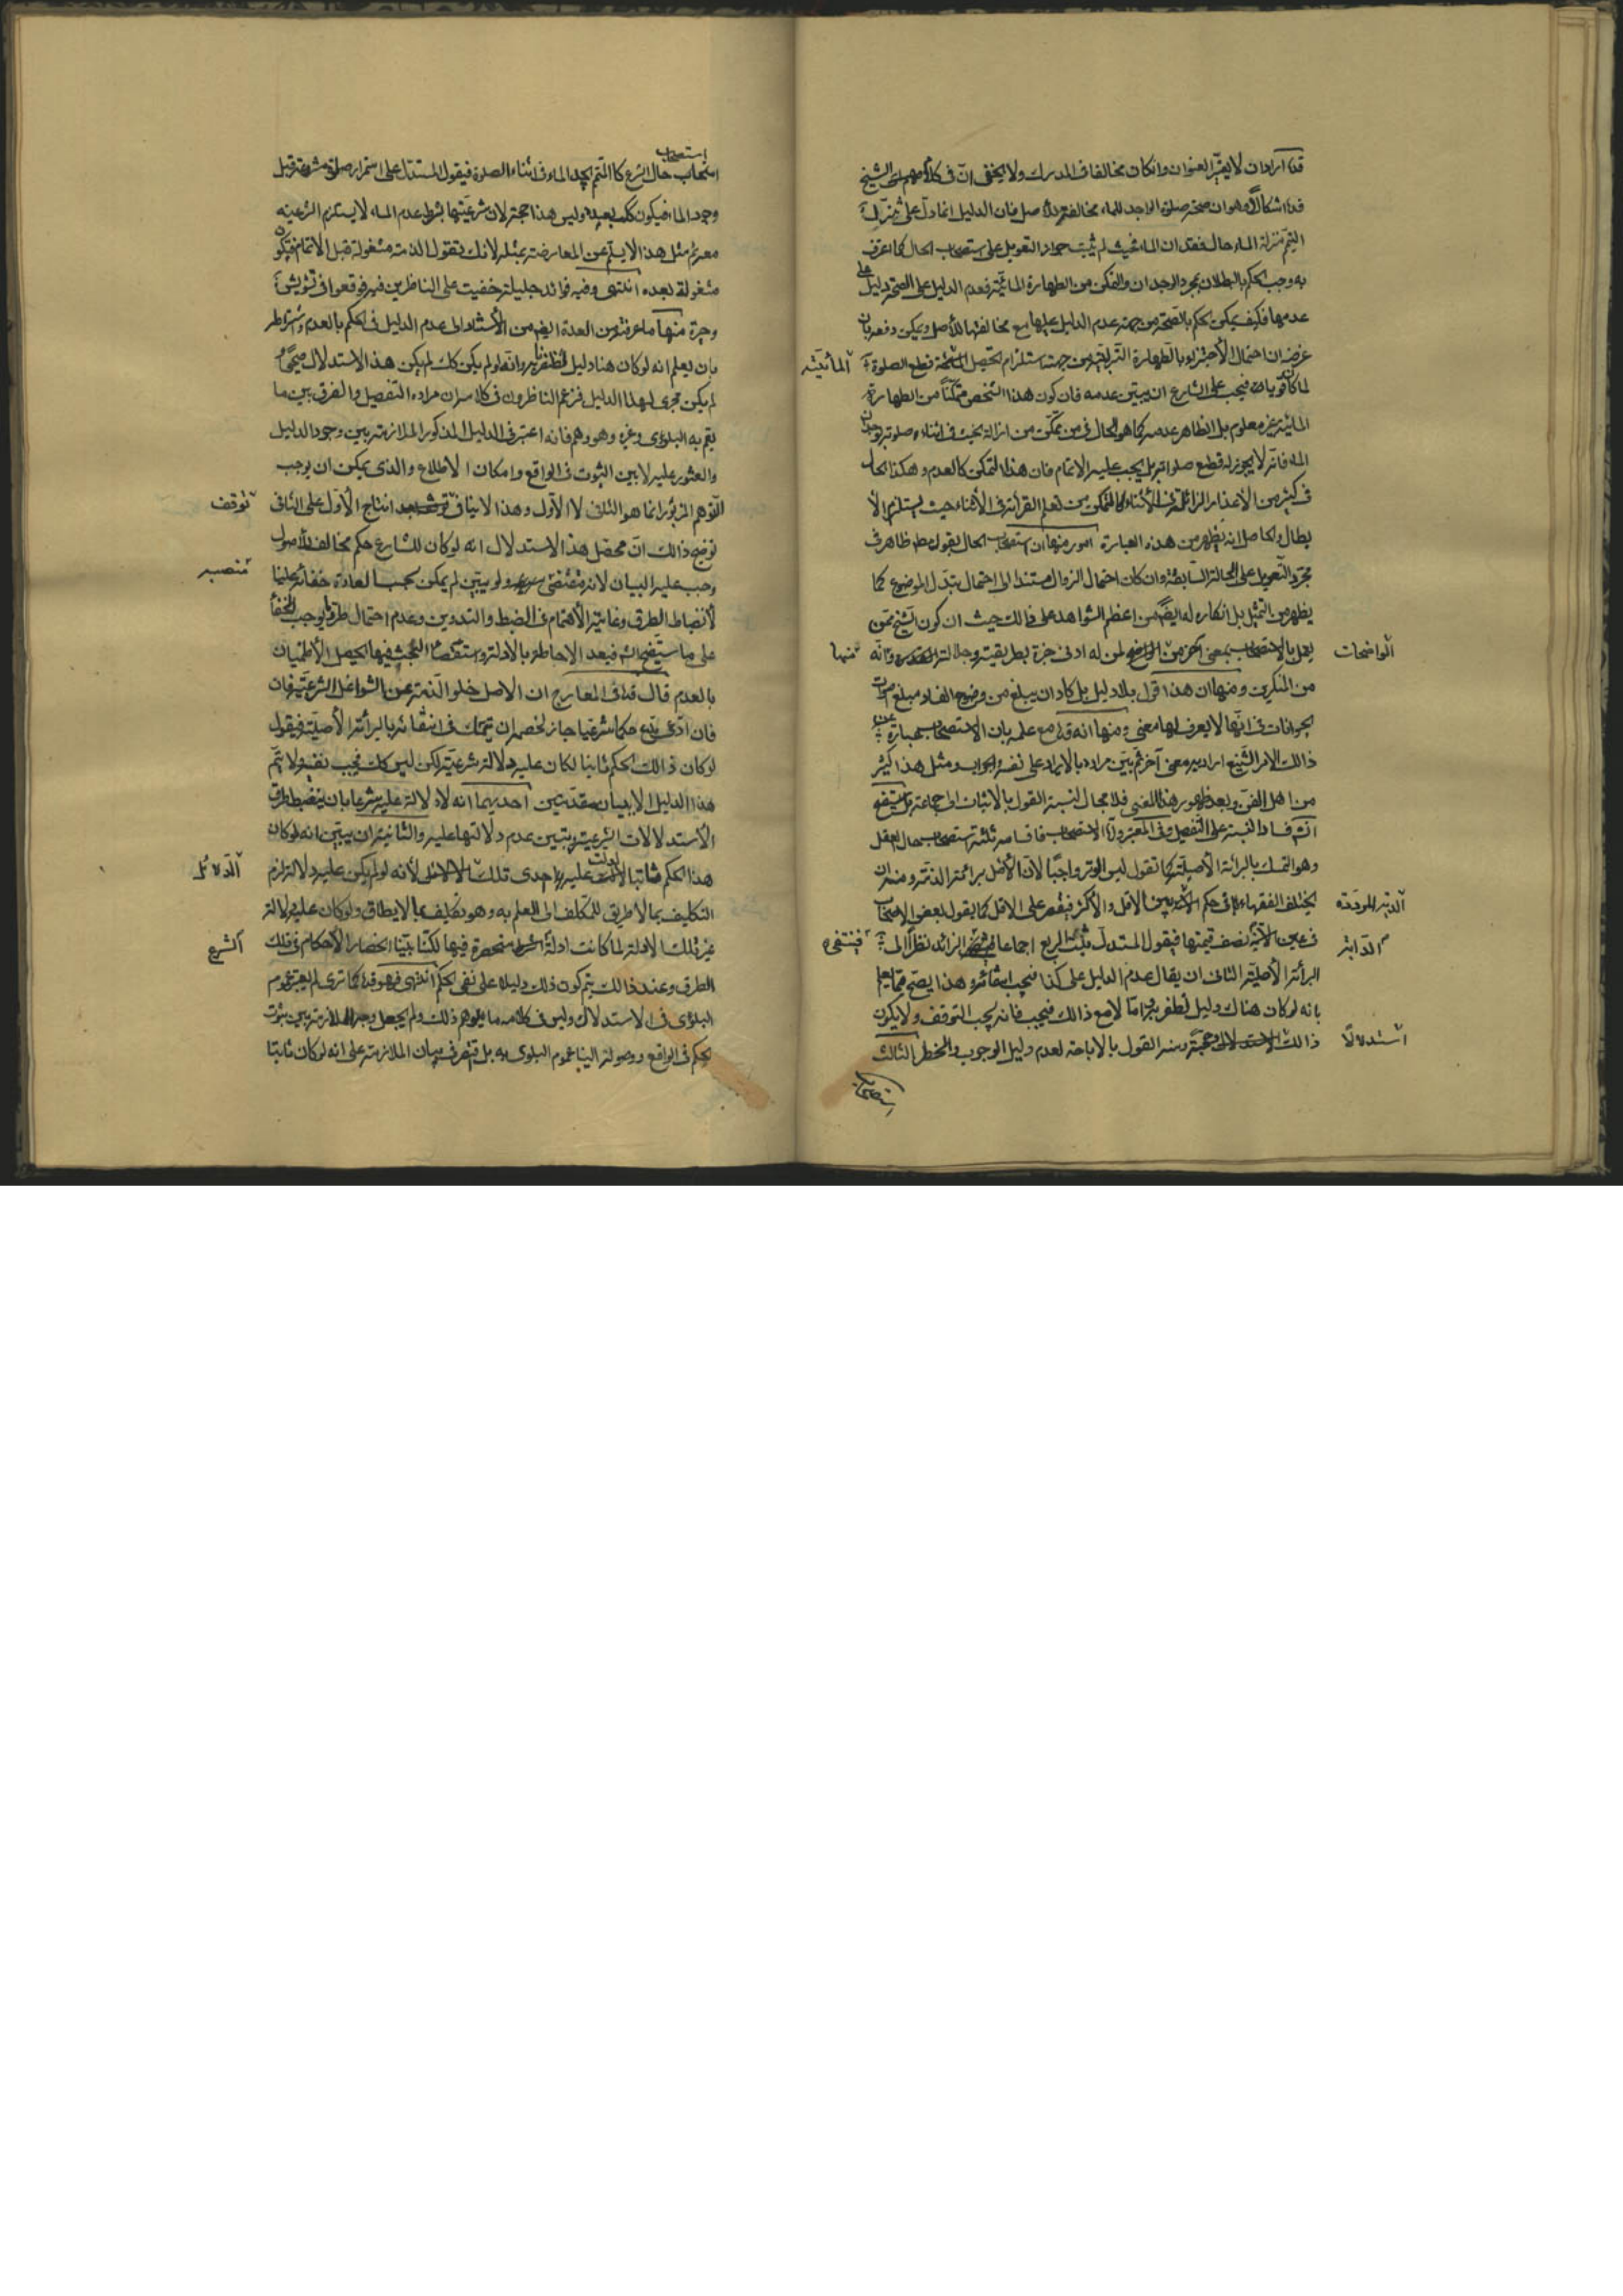 قده اراد ان لا يغير العنوان وان كان مخالفا فى المدرك ولا يخفى ان فى كلام الشيخ
قده اشكالا وهو ان صحة صلوة الواجد للماء مخالفة للاصل فان الدليل انما دل على تنزيل
التيمم منزلة الماء حال فقدان الماء فحيث لم يثبت جواز التعويل على استصحاب الحال كما اعترف
به وجب الحكم بالبطلان بمجرد الوجدان والتمكن من الطهارة المائية فعدم الدليل على الصحة دليل على
عدمها فكيف يمكن الحكم بالصحة من جهة عدم الدليل عليها مع مخالفتها للاصل ويمكن دفعه بان
غرضه ان احتمال الاجتزاء بالطهارة الترابية من جهة استلزام تحصيل قطع الصلوة
المائية
لما كان قويا فيجب على الشارع ان يبين عدمه فان كون هذا الشخص متمكنا من الطهارة
المائية غير معلوم بل الظاهر عدمه كما هو الحال فى من تمكن من ازالة الخبث فى اثناء صلوته بوجدان
الماء فانه لا يجوز له قطع صلواته بل يجب عليه الاتمام فان هذا التمكن كالعدم وهكذا الحال
فى كثير من الاعذار الزائلة فى الاثناء كالتمكن من تعلم القرائة فى الاثناء حيث يستلزم الا
بطال والحاصل انه يظهر من هذه العبارة امور منها ان استصحاب الحال بقول مطلق ظاهر فى
مجرد التعويل على الحالة السابقة وان كان احتمال الزوال مستندا الى احتمال تبدل الموضوع كما
يظهر من التمثيل بل انكاره له ايضا من اعظم الشواهد على ذالك حيث ان كون الشيخ ممن
يعمل بالاستصحاب بمعنى اخر من لمن له ادنى خبرة بطريقته وجلالته وانه
الواضحات
منها
من المنكرين ومنها ان هذا قول بلا دليل بل كاد ان يبلغ من وضوح الفساد مبلغ اصوات
الحيوانات فى انها لا يعرف لها معنى ومنها انه قده مع علمه بان الاستصحاب عبارة عن
ذالك الامر الشنيع اراد به معنى آخر ثم بين مراده بالايراد على نفسه والجواب ومثل هذا كثير
من اهل الفن وبعد ظهور هذا المعنى فلا مجال لنسبة القول بالاثبات الى جماعة وستعرف
انشم فساد النسبة على التفصيل وفى المعتبر واما الاستصحاب فاقسامه ثلثة استصحاب حال العقل
وهو التمسك بالبرائة الاصلية كما تقول ليس الوتر واجبا لان الاصل برائة الذمة ومنه ان
يختلف الفقهاء فى حكم بين الاقل والاكثر فيقصر على الاقل كما يقول بعض الاصحاب
الدية المرددة
فى عين نصف قيمتها فيقول المستدل ثبت الربع اجماعا الزائد نظرا الى
الدابة
فينتفى
البرائة الاصلية الثانى ان يقال عدم الدليل على كذا فيجب انتفائه وهذا يصح فيما يعلم
بانه لو كان هناك دليل لظفر به اما لا مع ذالك فيجب فانه يجب التوقف ولا يكون
ذالك حجة ومنه القول بالاباحة لعدم دليل الوجوب والحظر الثالث
استدلالا
استصحاب
استصحاب
استصحاب حال الشرع كالمتيمم يجد الماء فى اثناء الصلوة فيقول المستدل على استمرار صلوة مشروعة قبل
وجود الماء فيكون كك بعده وليس هذا حجة لان شرعيتها بشرط عدم الماء لا يستلزم الشرعية
معه ثم مثل هذا لا يسلم عن المعارضة بمثله لانك تقول الذمة مشغولة قبل الاتمام فتكون
مشغولة بعده انتهى وفيه فوائد جليلة خفيت على الناظرين فيه فوقعوا فى تشويش
وحيرة منها ما عرفته من العدة ايضا من الاستناد الى عدم الدليل فى الحكم بالعدم واشتراطه
بان يعلم انه لو كان هنا دليل لظفرنا به وانه لو لم يكن كك لم يكن هذا الاستدلال صحيحا و
لم يكن مجرى لهذا الدليل فزعم الناظرون فى كلامه ان مراده التفصيل والفرق بين ما
يعم به البلوى وغيره وهو وهم فانه اعتبر فى الدليل المذكور الملازمة بين وجود الدليل
والعثور عليه لا بين الثبوت فى الواقع وامكان الاطلاع والذى يمكن ان يوجب
التوهم المزبور انما هو الثانى لا الاول وهذا لا ينافى انتاج الاول على الثانى
توقف
توضيح ذالك ان محصل هذا الاستدلال انه لو كان للشارع حكم مخالف للاصول
وجب عليه البيان لانه مقتضى ولو بين لم يمكن بحسب العادة خفائه علينا
منصبه
لانضباط الطرق وغاية الاهتمام فى الضبط والتدوين وعدم احتمال طرو ما يوجب الخفأ
على ما ستيضح انشم فبعد الاحاطة بالادلة واستقصاء البحث فيها يحصل الاطمينان
بالعدم قال قده فى المعارج ان الاصل خلو الذمة عن الشواغل الشرعية فان
فان ادعى مدع حكما شرعيا جاز لخصمه ان يتمسك فى انتفائه بالبرائة الاصلية فيقول
لو كان ذالك الحكم ثابتا لكان عليه دلالة شرعية لكن ليس كك فيجب نفيه ولا يتم
هذا الدليل الا ببيان مقدمتين احديهما انه لا دلالة عليه شرعا بان يضبط طرق
الاستدلالات الشرعية ويتبين عدم دلالتها عليه والثانية ان يبين انه لو كان
هذا الحكم ثابتا لدلت عليه احدى تلك لانه لو لم يكن عليه دلالة لزم
الدلائل
التكليف بما لا طريق للمكلف الى العلم به وهو تكليف بما لا يطاق ولو كان عليه دلالة
غير تلك الادلة لما كانت ادلة منحصرة فيها لكنا بينا انحصار الاحكام فى تلك
الشرع
الطرق وعند ذالك يتم كون ذلك دليلا على نفى الحكم انتهى فهو قده كما ترى لم يعتبر عموم
البلوى فى الاستدلال وليس فى كلامه ما يوهم ذلك ولم يجعل وجه الملازمة بين ثبوت
الحكم فى الواقع ووصوله الينا عموم البلوى به بل اقتصر فى بيان الملازمة على انه لو كان ثابتا